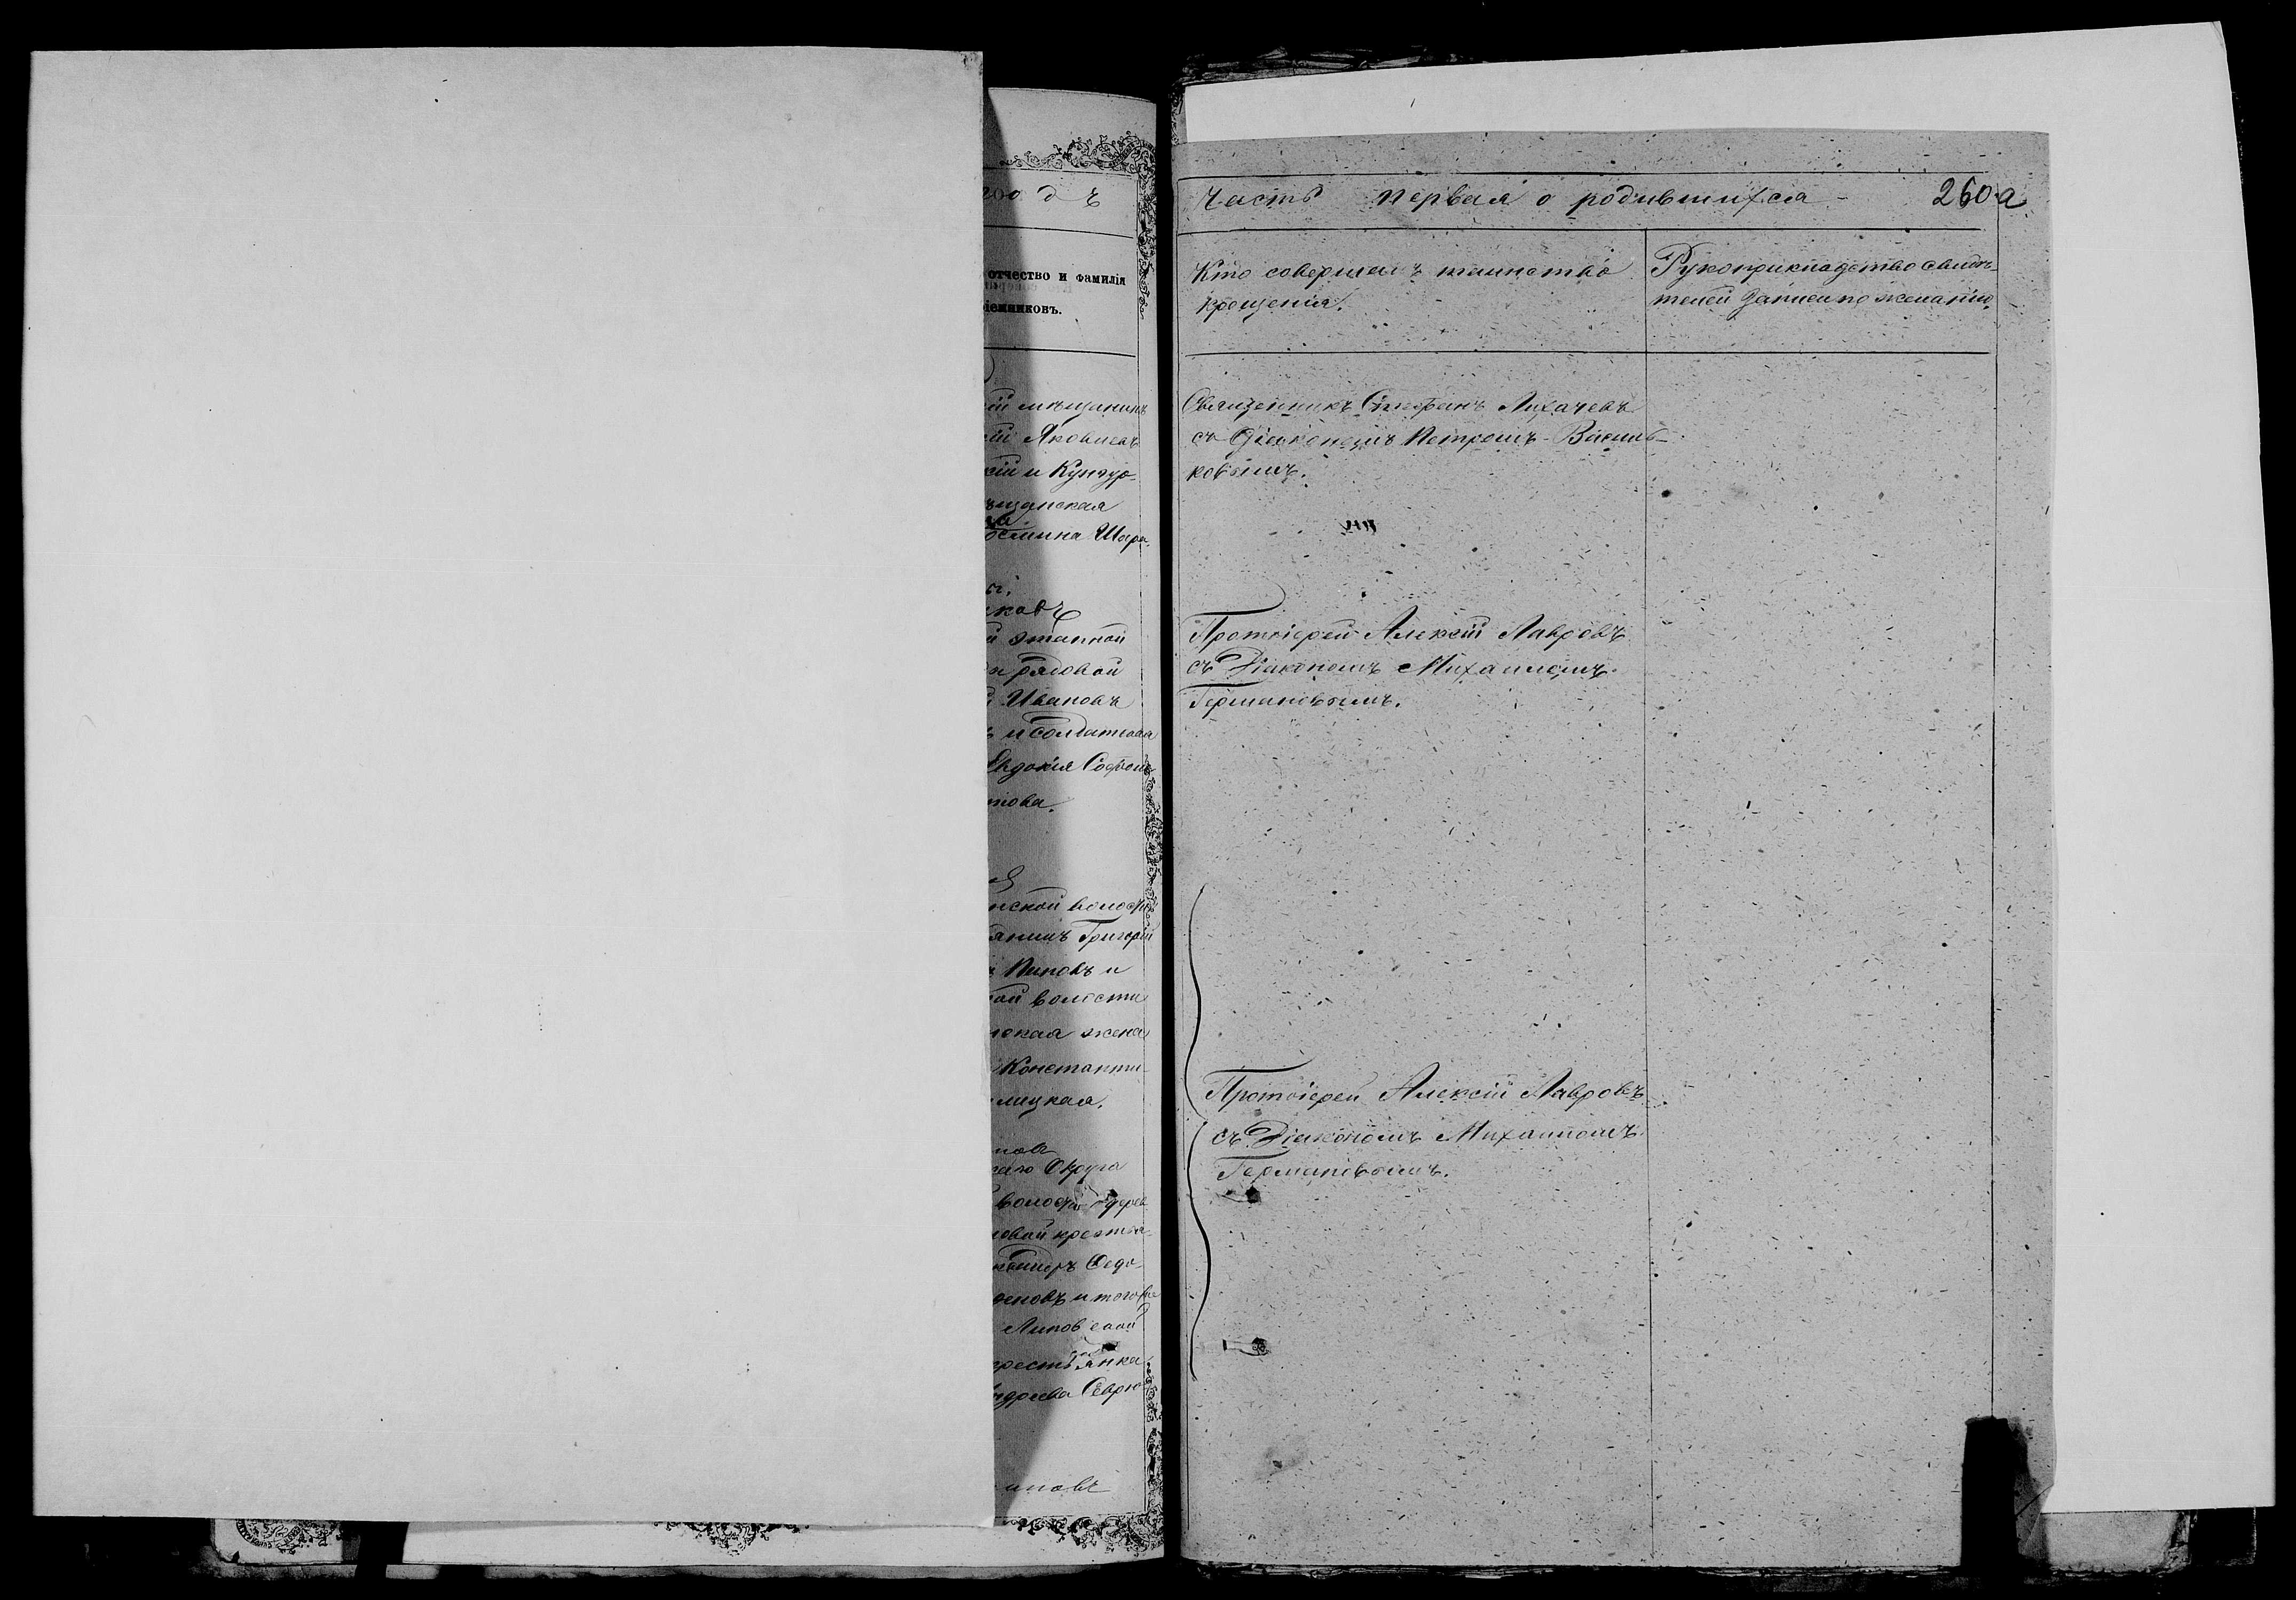 годъ
отчество и фамилія
ріемниковъ.
ій мѣщанинъ
сій Яковлевъ
кій и Кунгур-
ѣщанская
осмина Шара-
ковъ
й этапной
ы рядовой
й Ивановъ
ъ и солдатская
Евдокія Софрон-
това.
нской волости
янинъ Григорій
Пановъ и
кой волости
нская жена
Константи-
лицкая.
нова
каго Округа
волости дерев
ловой крестья-
Ѳедо-
еновъ и того же
Липовской
крестьянка
ндреева Севрю-
иновъ
Часть первая о родившихся - 260а
Кто совершалъ таинство
крещенія.
Рукоприкладство свидѣ-
телей записи по желанію.
Священникъ Стефанъ Лихачевъ
съ Діакономъ Петромъ Василь-
ковымъ.
Протоіерей Алексій Лавровъ
съ Діакономъ Михаиломъ
Германовымъ.
Протоіерей Алексій Лавровъ
съ Діакономъ Михаиломъ
Германовымъ.